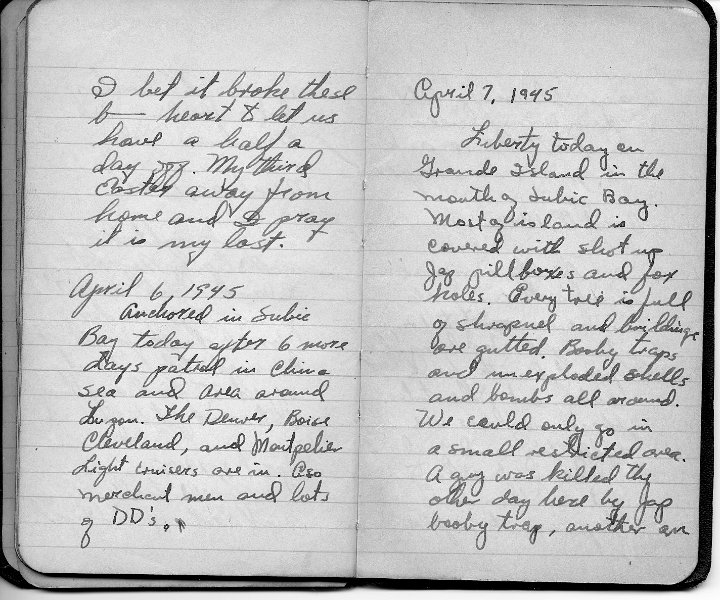 I bet it broke these
b— heart to let us
have a half a
day off. My third
Easter away from
home and I pray
it is my last.
April 6, 1945
Anchored in Subic
Bay today after 6 more
days patrol in China
sea and area around
Luzon. The Denver, Boise
Cleveland, and Montpelier
Light cruisers are in. Also
merchant men and lots
of DD's.
April 7, 1945
Liberty today on
Grande Island in the
mouth of Subic Bay.
Most of island is
covered with shot up
Jap pillboxes and fox
holes. Every tree is full
of shrapnel and buildings
are gutted. Booby traps
and unexploded shells
and bombs all around.
We could only go in
a small restricted area.
A guy was killed the
other day here by Jap
booby trap, another an